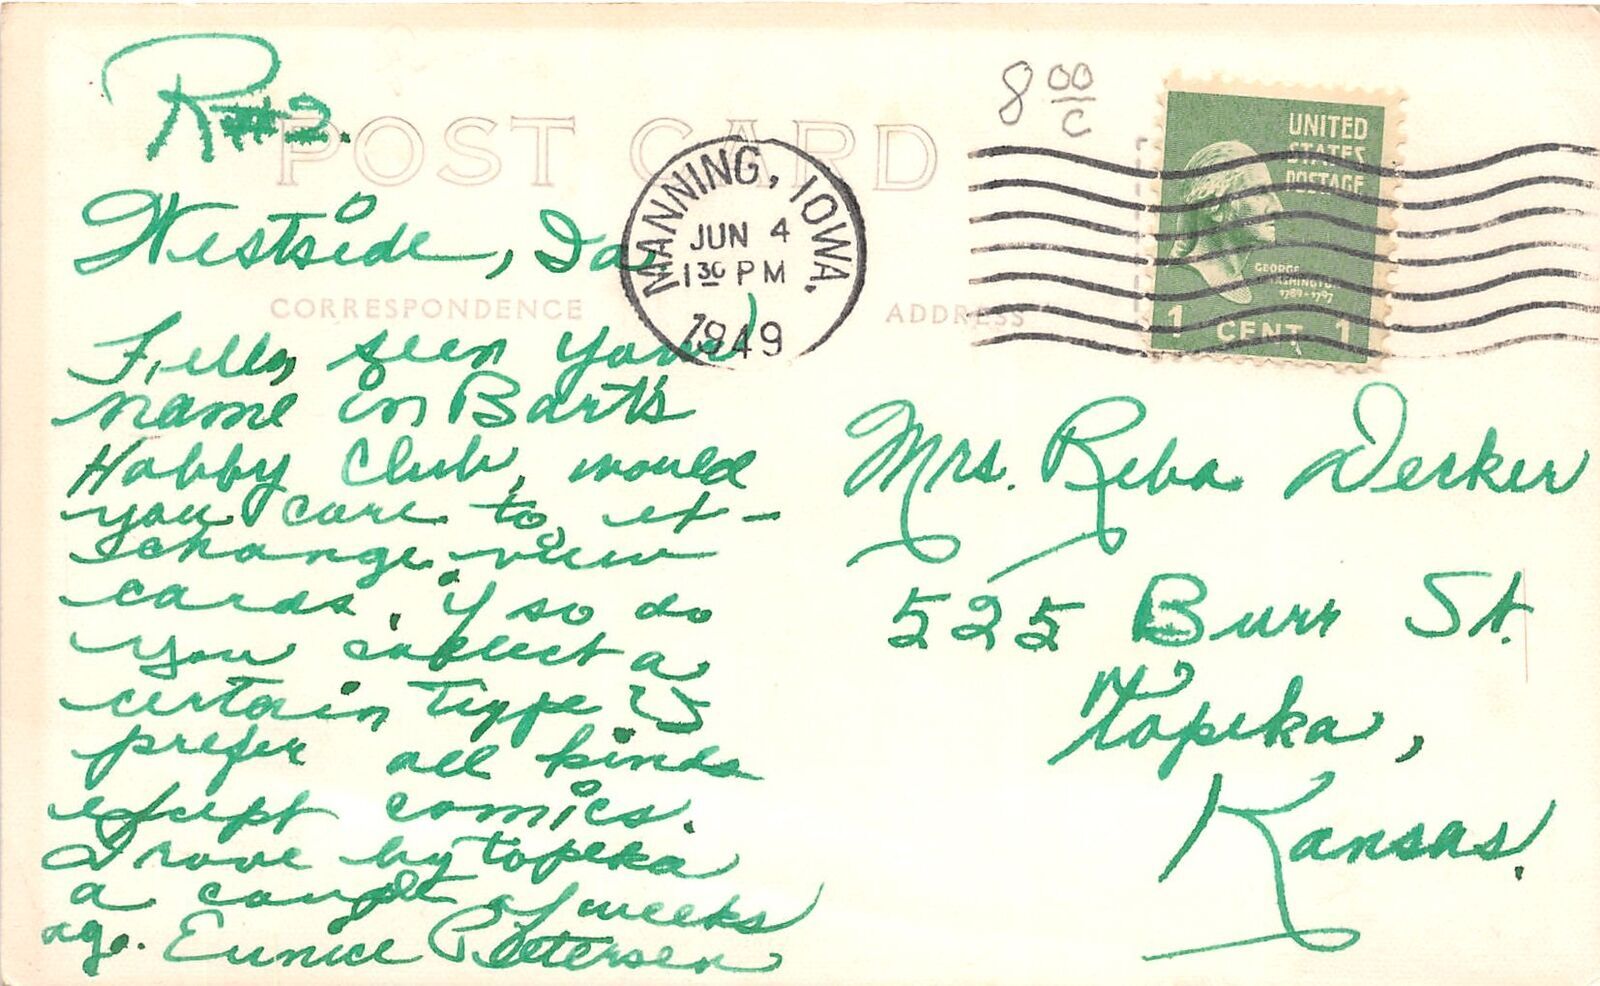 R#2.
POST CARD
Westside, Ia
CORRESPONDENCE
Hello, seen your
name in Bart's
Hobby Club, would
you care to ex-
change view
cards. if so do
you collect a
certain type I
prefer all kinds
except comics.
Drove by topeka
a couple of weeks
ago. Eunice Petersen
MANNING, IOWA.
JUN 4
1 30 PM
1949
8 00/C
UNITED
STATES
POSTAGE
GEORGE
WASHINGTON
1789-1797
1 CENT 1
ADDRESS
Mrs. Reba Decker
525 Burr St.
Topeka,
Kansas.